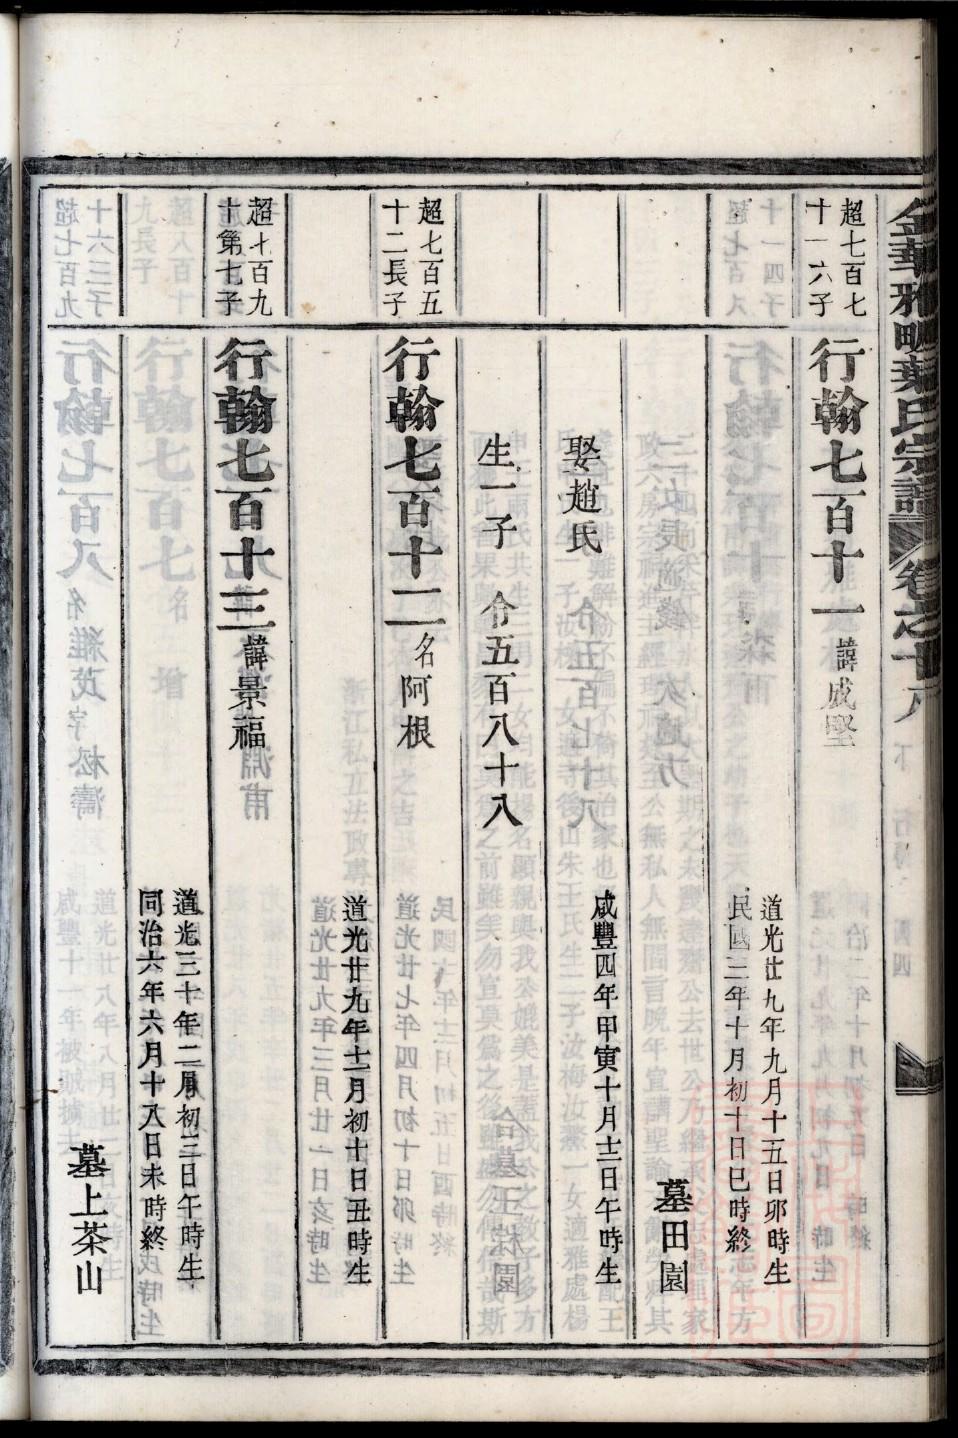 金華雅畈葉氏宗譜 卷之十八
超七百七
十一六子
行翰七百十一 諱成堅
道光廿九年九月十五日卯時生
民國三年十月初十日巳時終
墓田園
咸豐四年甲寅十月十二日午時生
娶趙氏
生一子 企五百八十八
超七百五
十二長子
行翰七百十二 名阿根
道光廿九年十一月初十日丑時生
超七百九
十第七子
行翰七百十三 諱景福
道光三十年二月初三日午時生
同治六年六月十八日未時終
墓上茶山